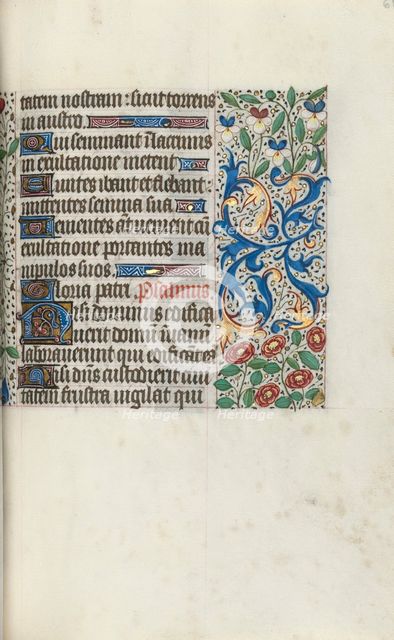 tatem nostram: sicut torrens
in austro.
Qui seminant i lacrimis
in exultatione metent
Euntes ibant et flebant:
mittentes semina sua
Uenientes autem venient cū
exultatione portantes ma
nipulos suos.
Gloria patri Psalmus
Nisi dominus edifica
uerit domū: in vanū
laborauerunt qui edificāt eā
Nisi dn̄s custodierit ciui
tatem frustra uigilat qui
Heritage
Heritage
Heritage
Heritage